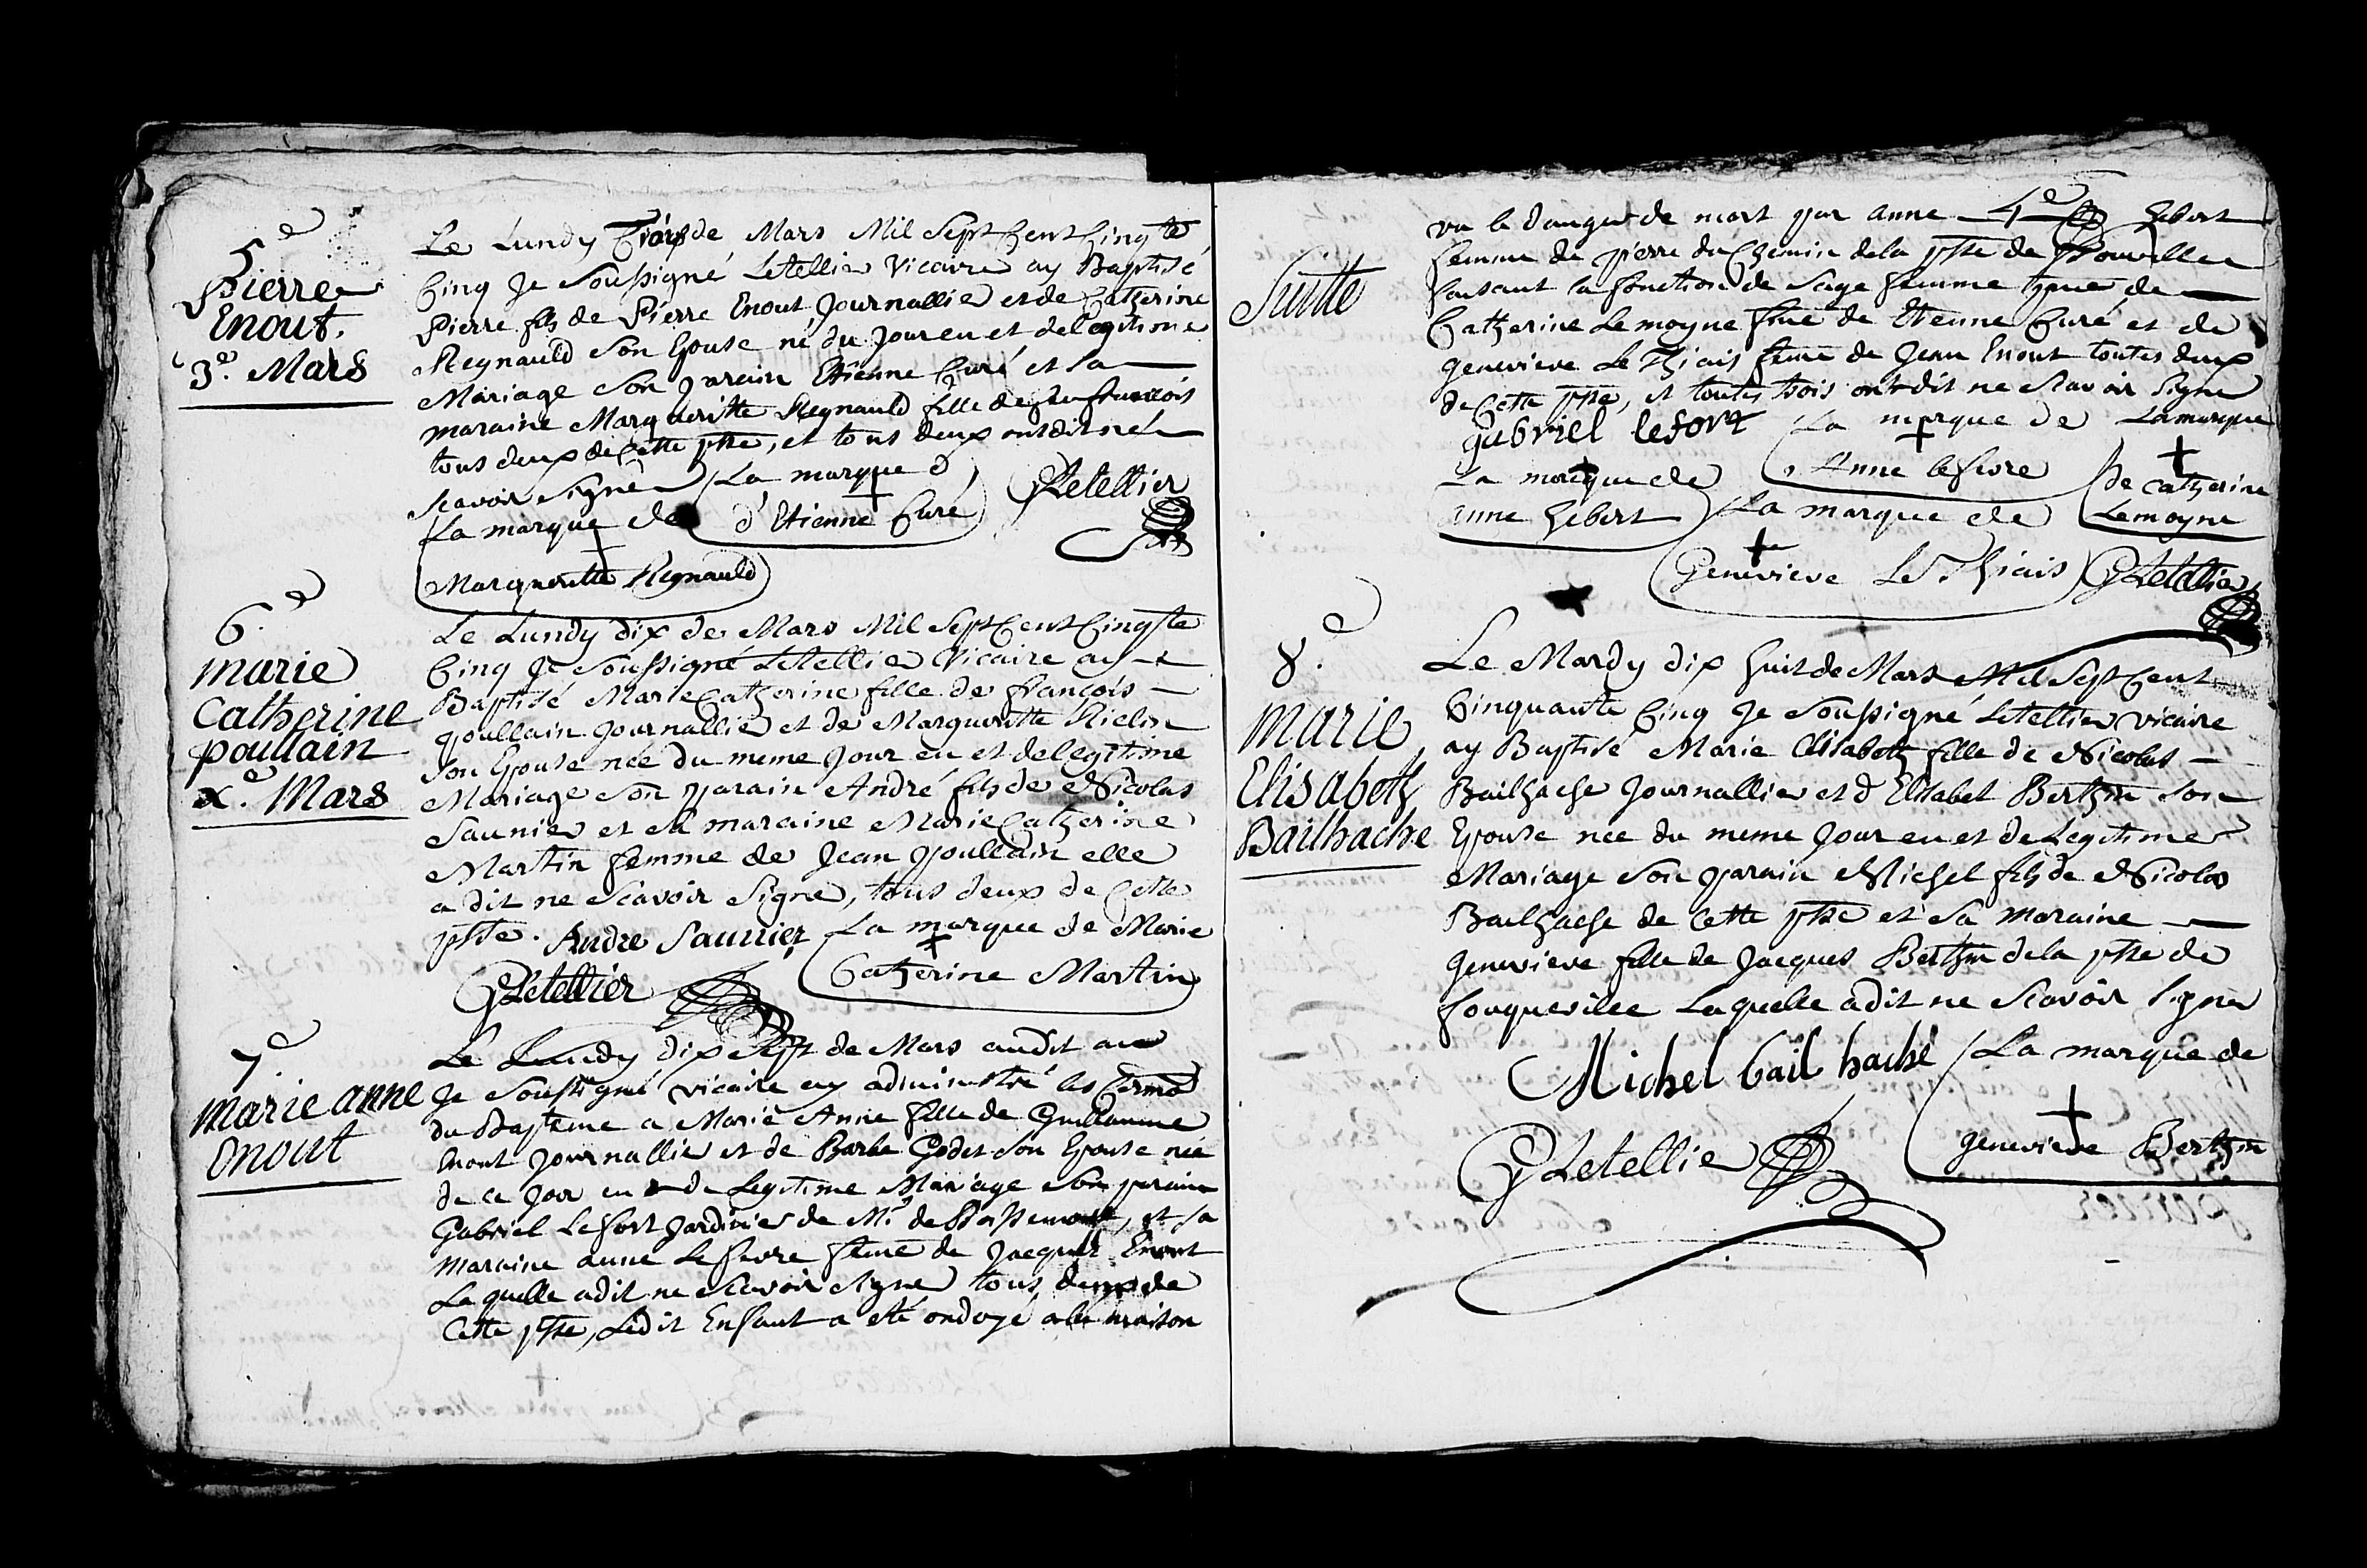 5e
Pierre
Enout.
3e. Mars
Le Lundy Trois de Mars Mil Sept Cent Cinqte
Cinq Je Soussigné Letellier Vicaire ay Baptisé
Pierre fils de Pierre Enout Journallier et de Catherine
Regnauld Son Epouse né du Jour eu et de legitime
Mariage Son parain Etienne Curé et Sa
maraine Margueritte Regnauld fille de feu francois
tous deux de Cette psse, et tous deux ont dit ne
Scavoir Signer La marque d
d'Etienne Curé GLetellier
La marque de
Margueritte Regnauld
6e.
marie
Catherine
poullain
xe. Mars
Le Lundy dix de Mars Mil Sept Cent Cinqte
Cinq Je Soussigné Letellier Vicaire ay
Baptisé Marie Catherine fille de francois
poullain Journallier et de Margueritte
Son Epouse née du meme Jour eu et de legitime
Mariage Son parain André fils de Nicolas
Saunier et Sa maraine Marie Catherine
Martin femme de Jean poullain elle
a dit ne Scavoir Signer, tous deux de Cette
psse. Andre Saunier La marque de Marie
Catherine Martin
GLetellier
7e.
marie anne
Enout
Le Lundy dix Sept de Mars audit an
Je Soussigné vicaire ay administré les Cermo
du Bapteme a Marie Anne fille de Guillaume
Enout Journallier et de Barbe Godet Son Epouse née
de ce Jour eu de Legitime Mariage Son parain
Gabriel Lefort Jardinier de Mr. de, et Sa
maraine anne Lefevre feme de Jacques Enout
La quelle a dit ne Scavoir Signer tous deux de
Cette psse, Ledit Enfant a eté ondoyé a la maison
4e
Suitte
vu le danger de mort par anne hebert
femme de pierre du Chemin de la psse de
faisant la fonction de Sage femme de
Catherine Lemoyne fme de Etienne Curé et de
genevieve Le Thiais feme de Jean Enout toutes deux
de Cette psse, et toutes trois ont dit ne Scavoir Signer
gabriel lefort La marque de La marque
Anne lefevre de Catherine
Lemoyne
La marque de
anne hebert La marque de
Genevieve Le Thiais GLetellier
8e.
marie
Elisabeth
Bailhache
Le Mardy dix huit de Mars Mil Sept Cent
Cinquante Cinq Je Soussigné Letellier vicaire
ay Baptisé Marie Elisabeth fille de Nicolas
Bailhache Journallier et d Elisabet Berthin Son
Epouse née du meme Jour eu et de Legitime
Mariage Son parain Michel fils de Nicolas
Bailhache de Cette psse et Sa maraine
genevieve fille de Jacques Berthin de la psse de
fouqueville Laquelle a dit ne Scavoir Signer
Michel bail haché La marque de
genevieve Berthin
GLetellier